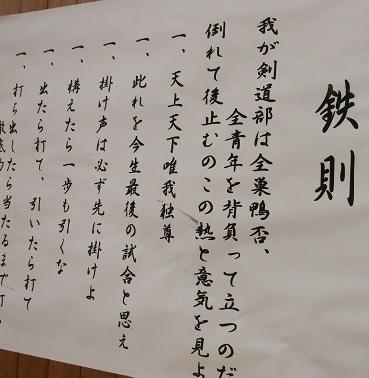 鉄則
我が剣道部は全巣鴨否、
全青年を背負って立つのだ
倒れて後止むのこの熱と意気を見よ
一、天上天下唯我独尊
一、此れを今生最後の試合と思え
一、掛け声は必ず先に掛けよ
一、構えたら一歩も引くな
一、出たら打て、引いたら打て
一、打ち出したら当たるまで打